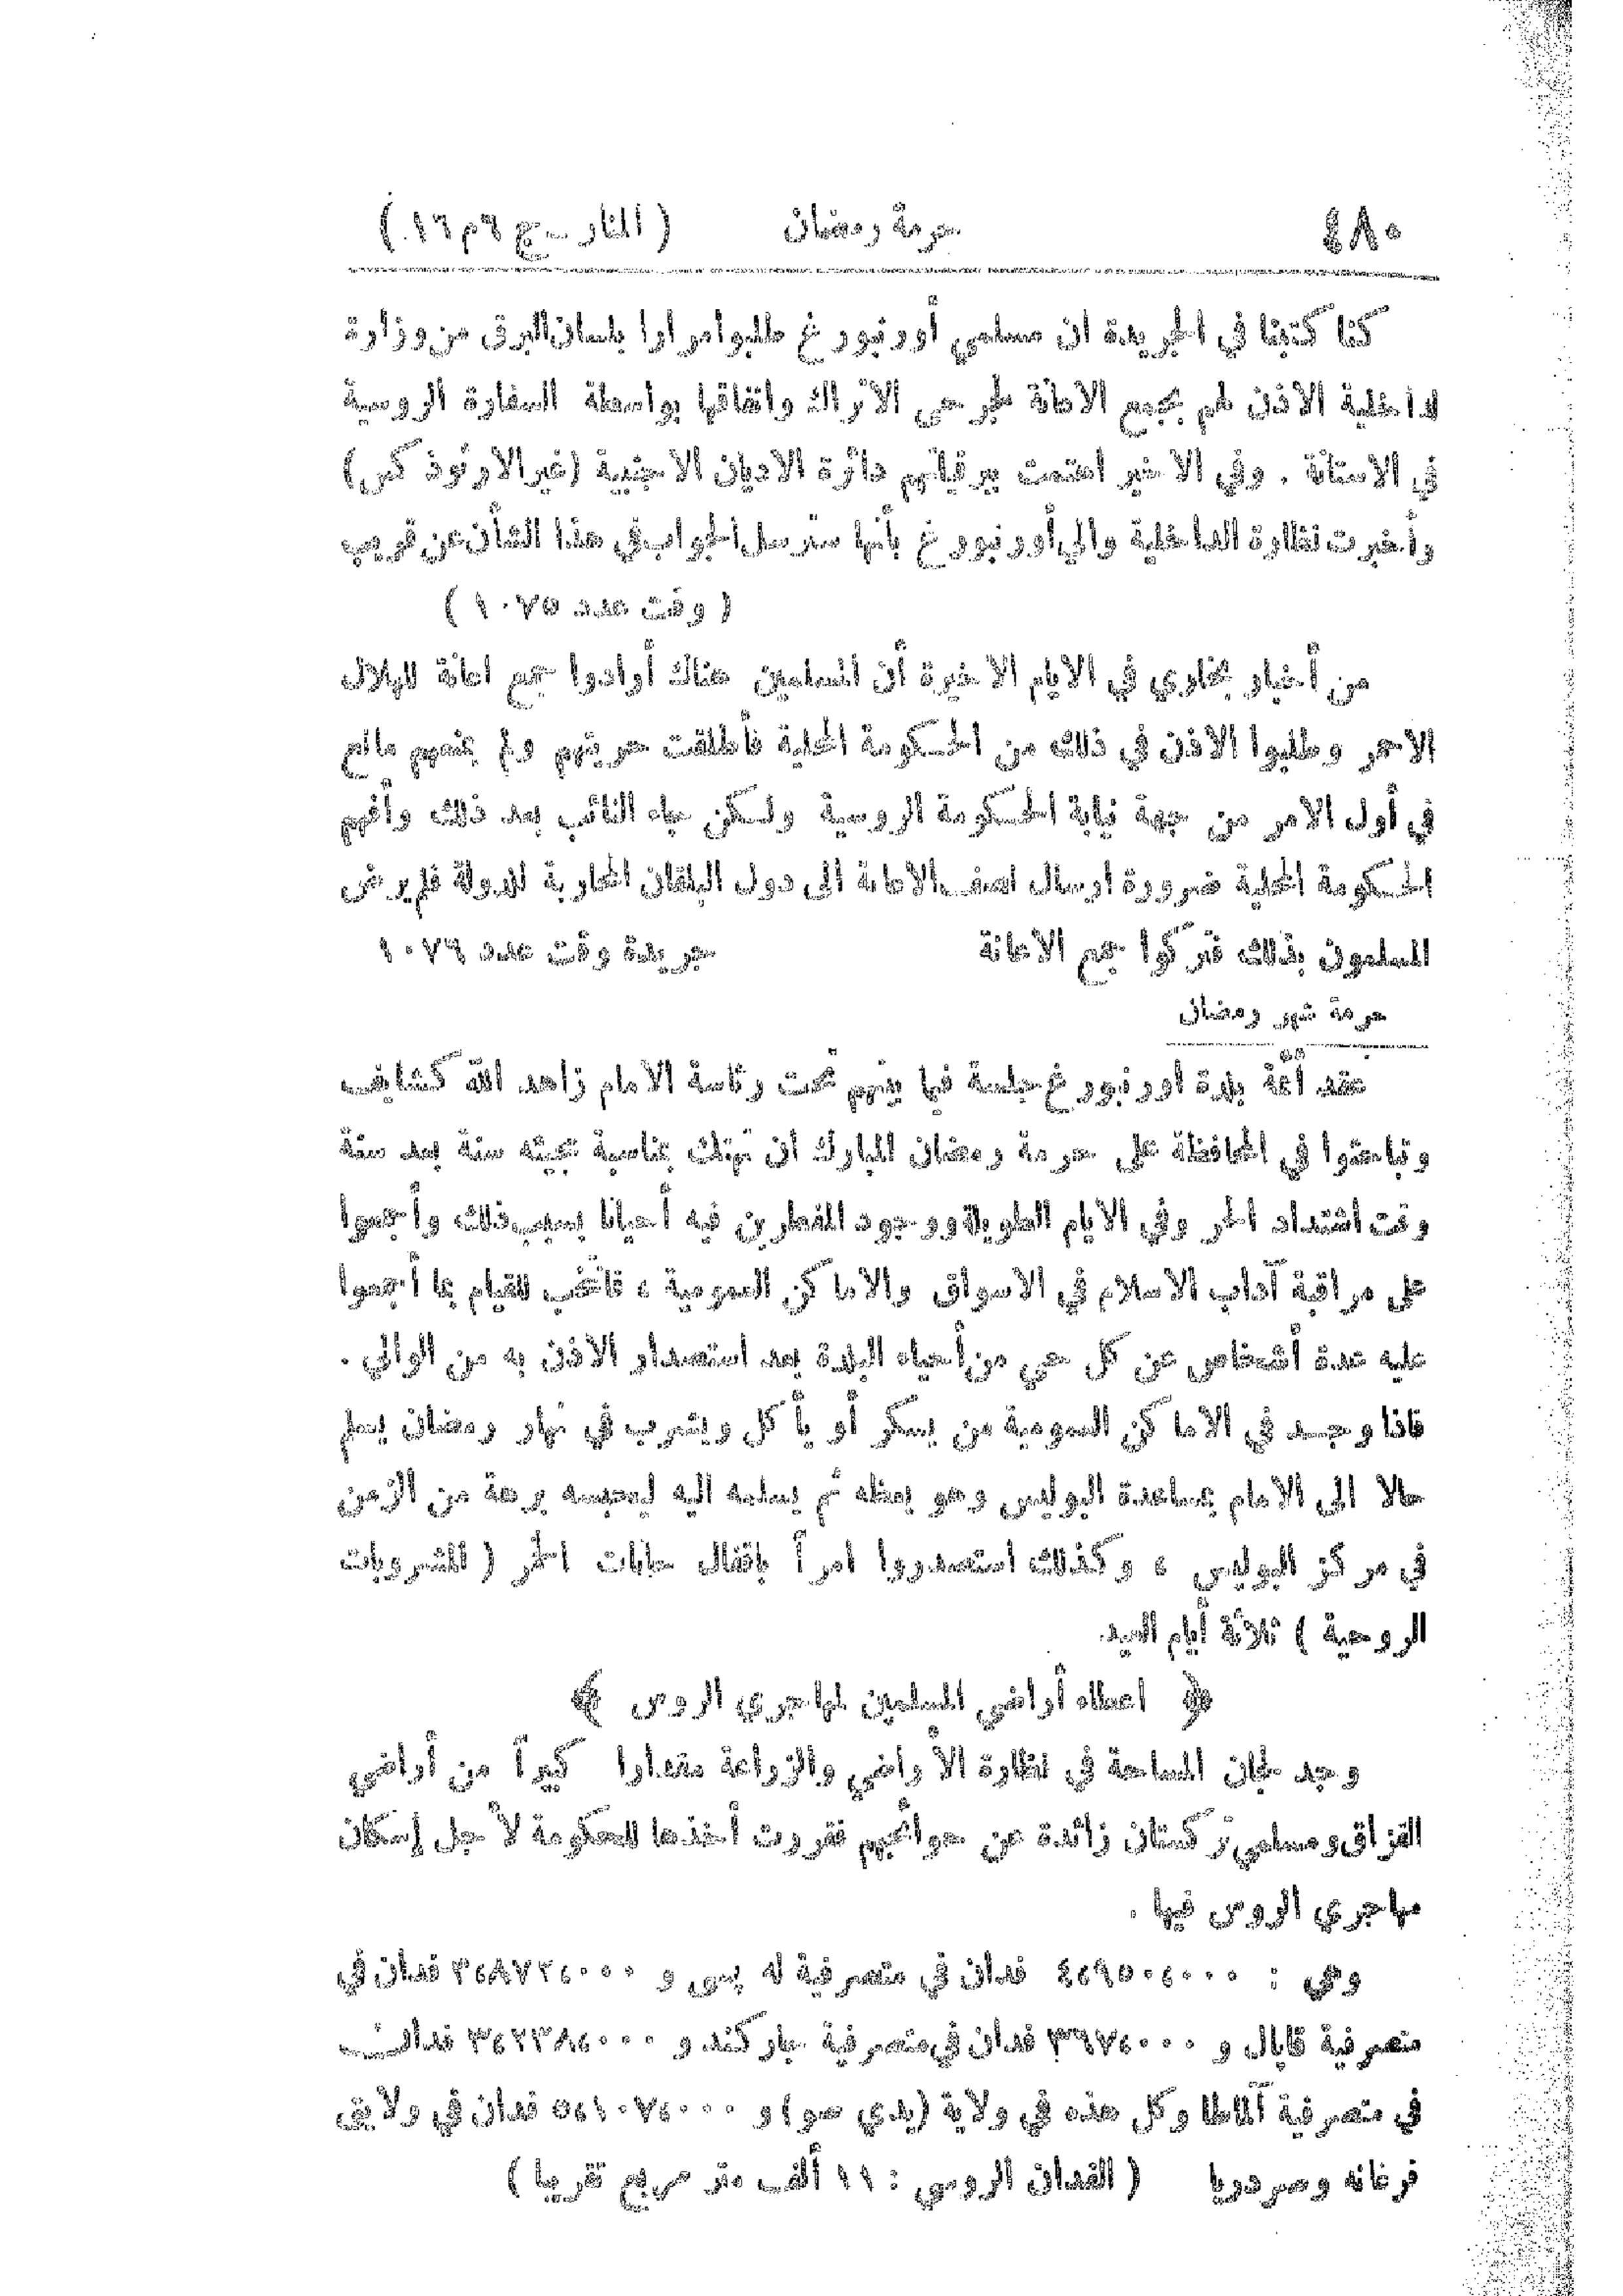 ٤٨٠ حرمة رمضان ( المنار – ج ٦ م ١٦ )
كنا كتبنا في الجريدة ان مسلمي أورنبورغ طلبوا مرارا بلسان البرق من وزارة
الداخلية الاذن لهم بجمع الاعانة لجرحى الاتراك وانفاقها بواسطة السفارة الروسية
في الاستانة . وفي الاخير اهتمت ببرقياتهم دائرة الاديان الاجنبية (غير الارثوذكس)
وأخبرت نظارة الداخلية والي أورنبورغ بأنها سترسل الجواب في هذا الشأن عن قريب
( وقت عدد ١٠٧٥ )
من أخبار بخارى في الايام الاخيرة أن المسلمين هناك أرادوا جمع اعانة للهلال
الاحمر وطلبوا الاذن في ذلك من الحكومة المحلية فأطلقت حريتهم ولم يمنعهم مانع
في أول الامر من جهة نيابة الحكومة الروسية ولكن جاء النائب بعد ذلك وأفهم
الحكومة المحلية ضرورة ارسال نصف الاعانة الى دول البلقان المحاربة للدولة فلم يرض
المسلمون بذلك فتركوا جمع الاعانة جريدة وقت عدد ١٠٧٦
حرمة شهر رمضان
عقد أئمة بلدة اورنبورغ جلسة فيما بينهم تحت رئاسة الامام زاهد الله كشايف
وتباحثوا في المحافظة على حرمة رمضان المبارك ان تهتك بمناسبة مجيئه سنة بعد سنة
وقت اشتداد الحر وفي الايام الطويلة ووجود المفطرين فيه أحيانا بسبب ذلك وأجمعوا
على مراقبة آداب الاسلام في الاسواق والاماكن العمومية ، فانتخب للقيام بما أجمعوا
عليه عدة أشخاص عن كل حي من أحياء البلدة بعد استصدار الاذن به من الوالي .
فاذا وجد في الاماكن العمومية من يسكر أو يأكل ويشرب في نهار رمضان يسلم
حالا الى الامام بمساعدة البوليس وهو يعظه ثم يسلمه اليه ليحبسه برهة من الزمن
في مركز البوليس ، وكذلك استصدروا امراً باقفال حانات الخمر ( المشروبات
الروحية ) ثلاثة أيام العيد
﴿ اعطاء أراضي المسلمين لمهاجري الروس ﴾
وجد لجان المساحة في نظارة الأراضي والزراعة مقدارا كبيراً من أراضي
القزاق ومسلمي تركستان زائدة عن حوائجهم فقررت أخذها للحكومة لأجل إسكان
مهاجري الروس فيها .
وهي : ٤،٩٥٠،٠٠٠ فدان في متصرفية له پسي و ٣،٨٧٢،٠٠٠ فدان في
متصرفية قابال و ٣٦٧،٠٠٠ فدان في متصرفية جاركند و ٣،٢٣٨،٠٠٠ فدان
في متصرفية آلماطا وكل هذه في ولاية (يدي صو) و ٥،١٠٧،٠٠٠ فدان في ولايتي
فرغانه وسردريا ( الفدان الروسي : ١١ ألف متر مربع تقريبا )